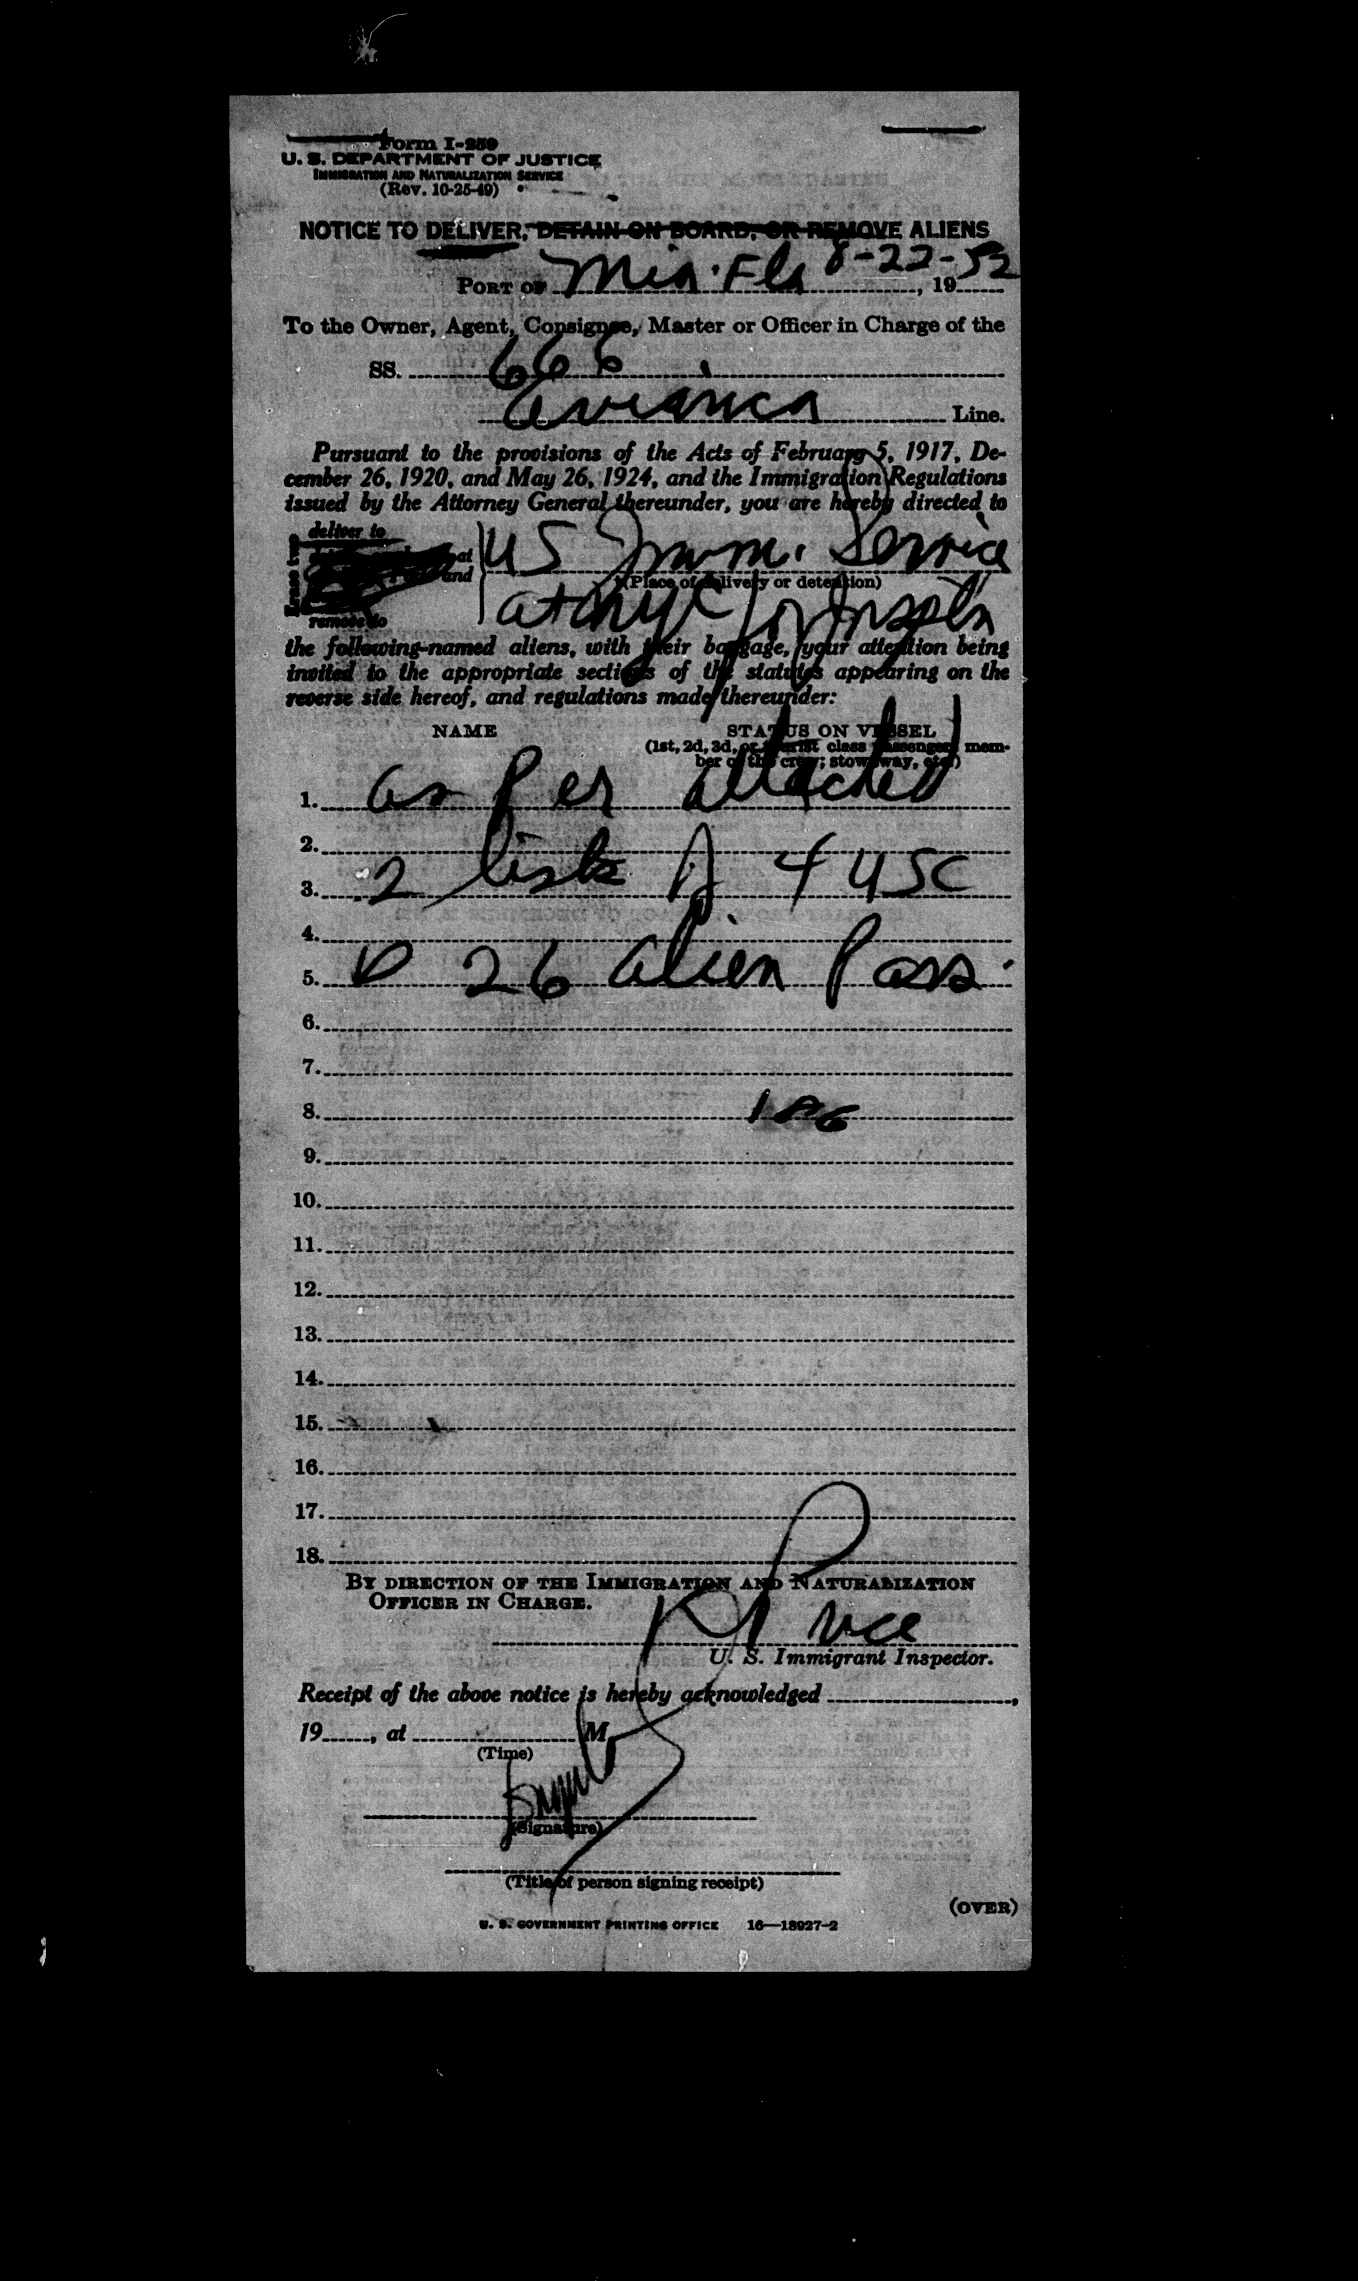 Form I-259
U. S. DEPARTMENT OF JUSTICE
IMMIGRATION AND NATURALIZATION SERVICE
(Rev. 10-25-49)
NOTICE TO DELIVER, DETAIN ON BOARD, OR REMOVE ALIENS
PORT OF Mia. Fla 8-22-52, 19
To the Owner, Agent, Consignee, Master or Officer in Charge of the
SS. 666
Avianca Line.
Pursuant to the provisions of the Acts of February 5, 1917, De-
cember 26, 1920, and May 26, 1924, and the Immigration Regulations
issued by the Attorney General thereunder, you are hereby directed to
deliver to
at US Imm. Service
and
(Place of delivery or detention)
remove to
at for Inspctn
the following-named aliens, with their baggage, your attention being
invited to the appropriate sections of the statutes appearing on the
reverse side hereof, and regulations made thereunder:
NAME STATUS ON VESSEL
(1st, 2d, 3d, or tourist class passenger; mem-
ber of the crew; stowaway, etc.)
1. as per attached
2.
3. 2 lists of 4 USC
4.
5. 26 alien Pass.
6.
7.
8.
9.
10.
11.
12.
13.
14.
15.
16.
17.
18.
BY DIRECTION OF THE IMMIGRATION AND NATURALIZATION
OFFICER IN CHARGE.
U. S. Immigrant Inspector.
Receipt of the above notice is hereby acknowledged ,
19 , at M.
(Time)
(Signature)
(Title of person signing receipt)
(OVER)
U. S. GOVERNMENT PRINTING OFFICE 16—18927-2